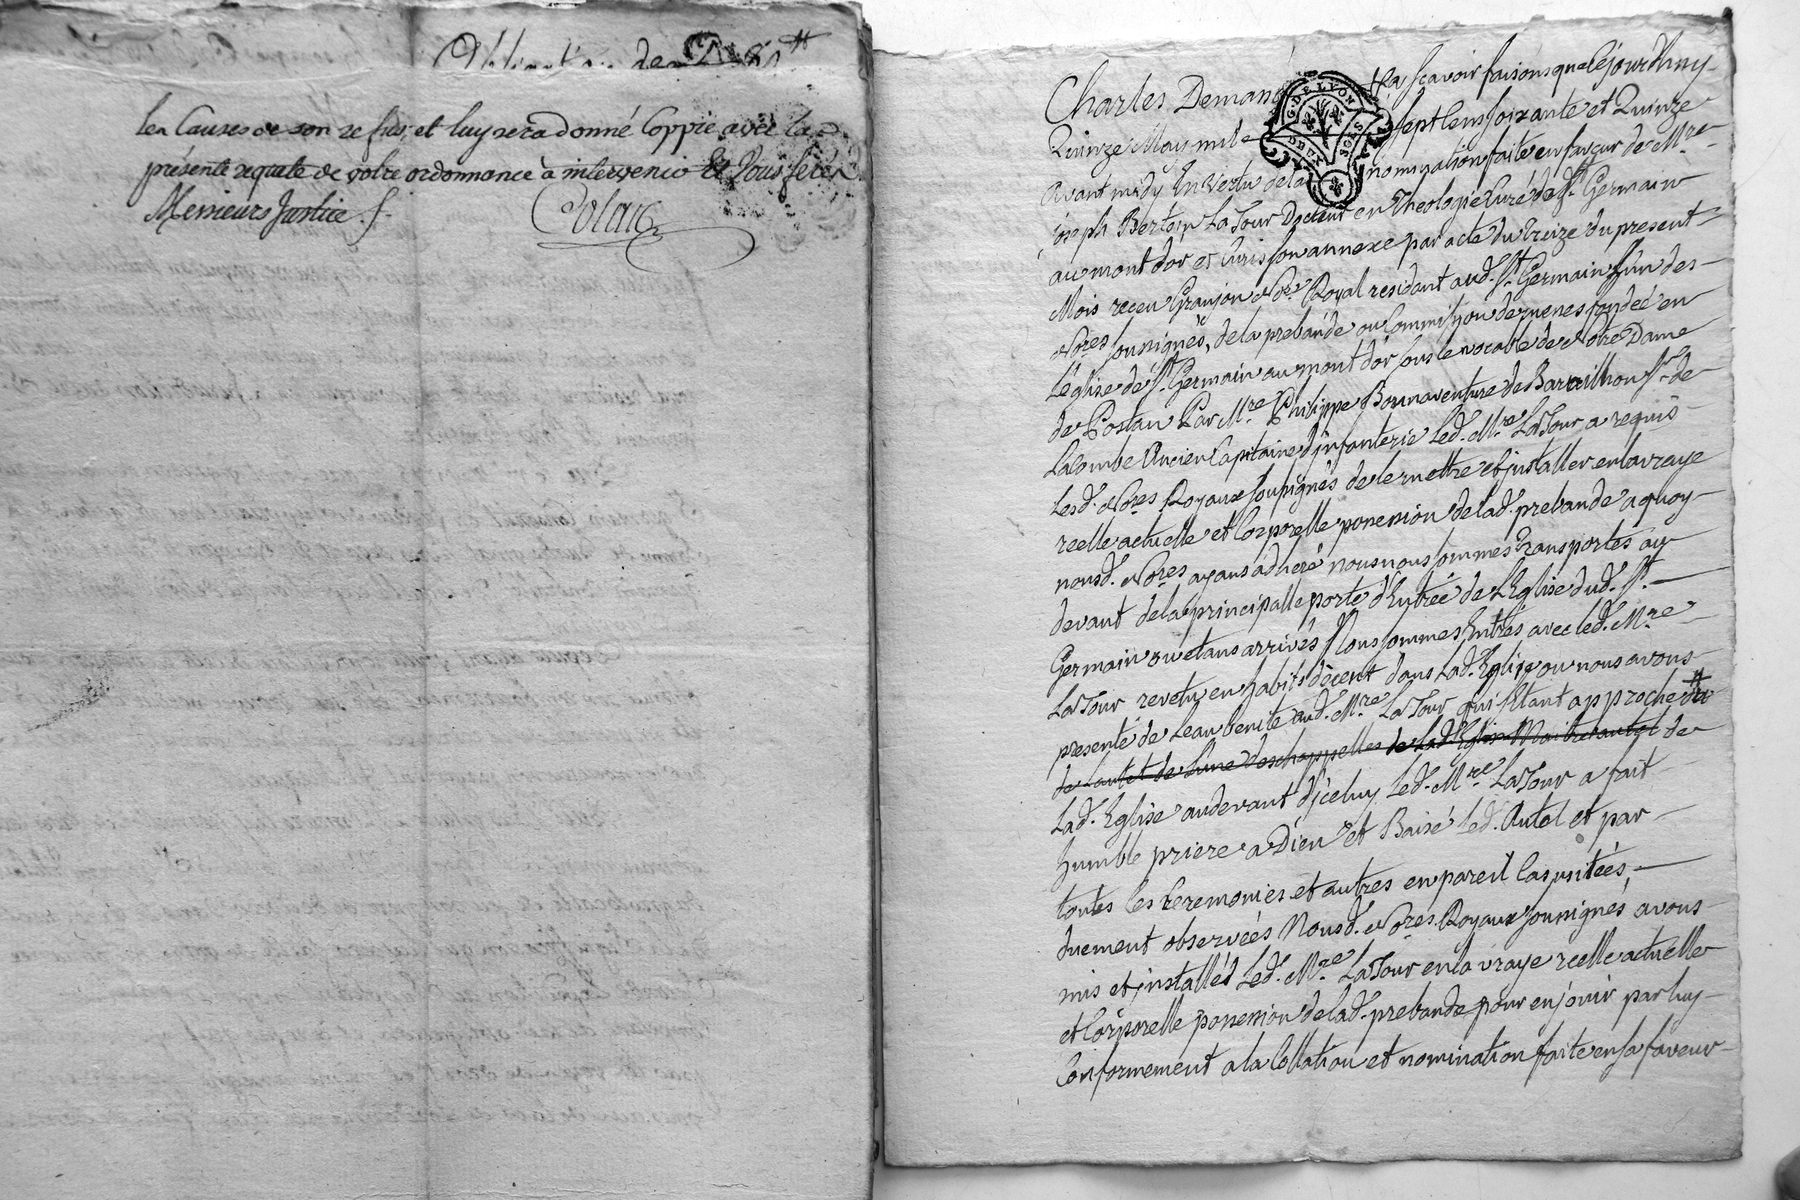 Obligation de
les Causes de son refus, et luy sera donné Coppie avec la
présente requete de votre ordonnance à intervenir Et Vous ferés
Messieurs Justice.
Colar
Charles Demans
Sca scavoir faisons que Cejourdhuy
Quinze May mil
sept Cens soixante et Quinze
avant midy En Vertu de la
nomination faite en faveur de Mre
G. DE LYON
DEUX SOLS
joseph Berton LaTour Docteur en Theologie Curé de St. Germain
au mont d'or et Curis son annexe par acte du treize du present
Mois receu Granjon Nore. Royal residant aud. St. Germain L'un des
Nores. soussignés, de la prebande ou Commission de messes fondée en
L'église de St. Germain au mont d'or sous le vocable de Notre Dame
de Par Mre. Philippe Bonnaventure de Baraillhon Sr. de
Lacombe Ancien Capitaine d'jnfanterie Led. Mre LaTour a requis
Lesd. Nores. Royaux soussignés de le mettre et jnstaller en la vraye
reelle actuelle et Corporelle possession de lad. prebande a quoy
nousd. Nores. ayans adhéré nous nous sommes transportés au
devant de la principalle porte d'Entrée de L'Eglise dud. St.
Germain ou etans arrivés Nous sommes Entrés avec led. Mre
LaTour revetu en habits décent dans Lad. Eglise ou nous avons
presenté de Leau benite aud. Mre LaTour qui s'Etant approché du
de Lautel de L'une des chappelles de Lad. Eglise Maitre autel de
Lad. Eglise audevant d'jceluy Led. Mre LaTour a fait
humble priere a Dieu et Baisé Led. Autel et par
toutes les Ceremonies et autres en pareil Cas usitées,
duement observées Nousd. Nores. Royaux soussignés, avons
mis et jnstallés Led. Mre. LaTour en la vraye reelle actuelle
et Corporelle possession de lad. prebande pour en jouir par luy
Conformement a la Collation et nomination faite en sa faveur